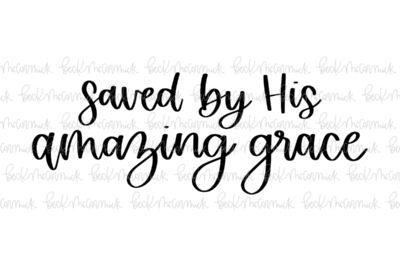 saved by His
amazing grace